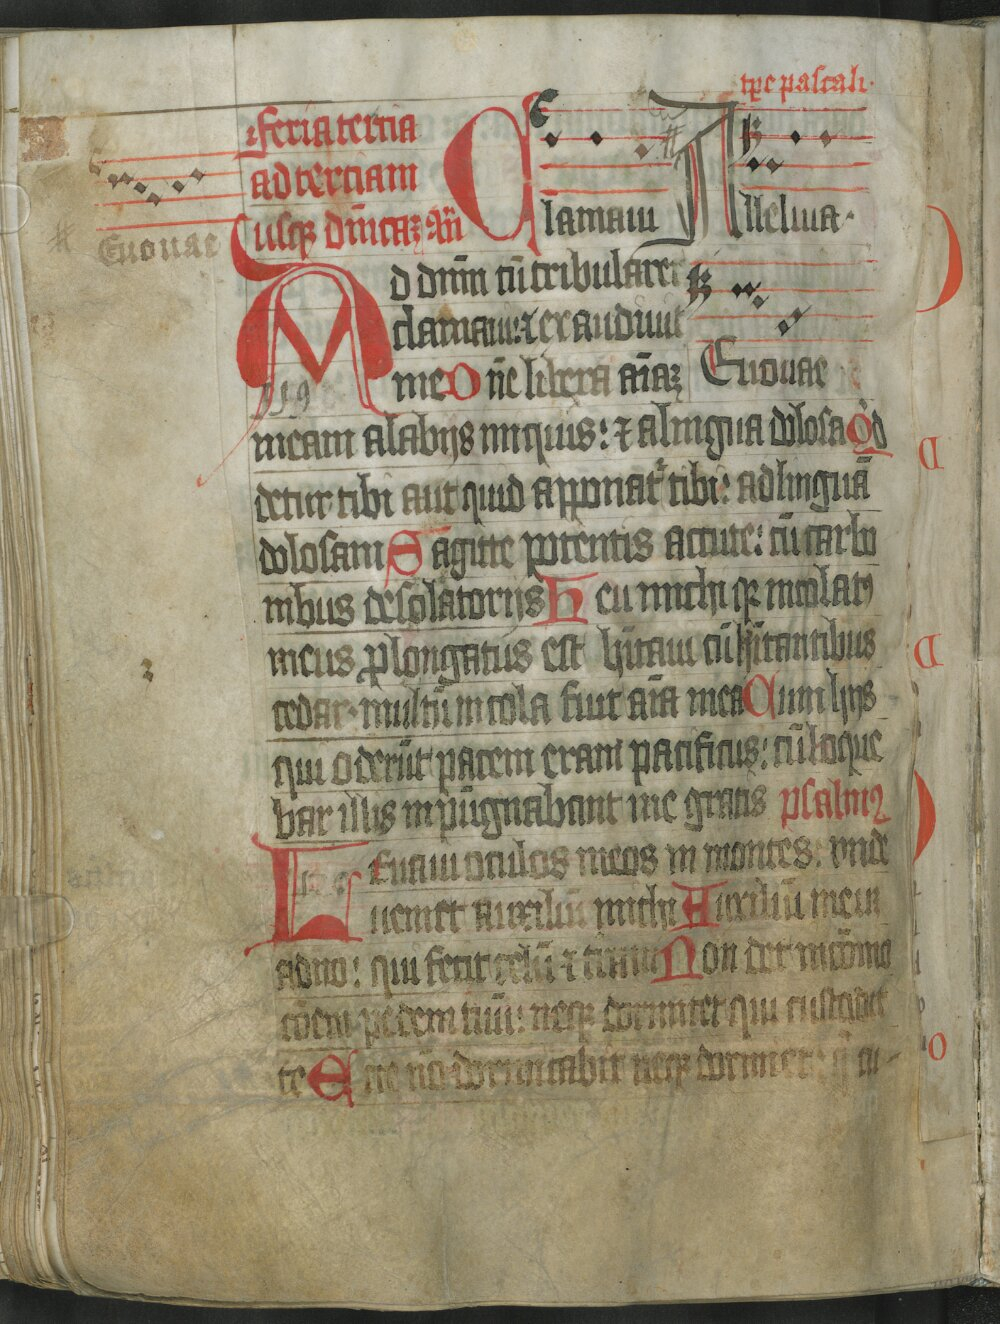 tp̄e pascali·
feria tertia
ad terciam
usq̄ dn̄icaꝝ an̄
Clamaui
Alleluia·
Euouae
Ad dn̄m cū tribularer
clamaui: ⁊ exaudiuit
me Dn̄e libera aīaꝫ
Euouae
119
meam alabijs iniquis: ⁊ alingua dolosa Qͥd
detur tibi aut quid apponat᷑ tibi: adlinguā
dolosam Sagitte potentis accute: cū carbo
nibus desolatorijs Heu michi qꝫ incolatꝰ
meus ꝓlongatus est hītaui cū hītantibus
cedar· multū incola fuit aīa mea Cum hijs
qui oderūt pacem eram pacificus: cū loque
bar illis inpugnabant me gratis psalmꝰ
Leuaui oculos meos in montes: vnde
ueniet auxiliū michi Auxiliū meū
adn̄o: qui fecit celū ⁊ t̄ram Non det incōmo
cōem pedem tuū: neqꝫ dormitet qui custodit
te Ecce nō dormitabit neqꝫ dormiet: qͥ cu-
D
D
O